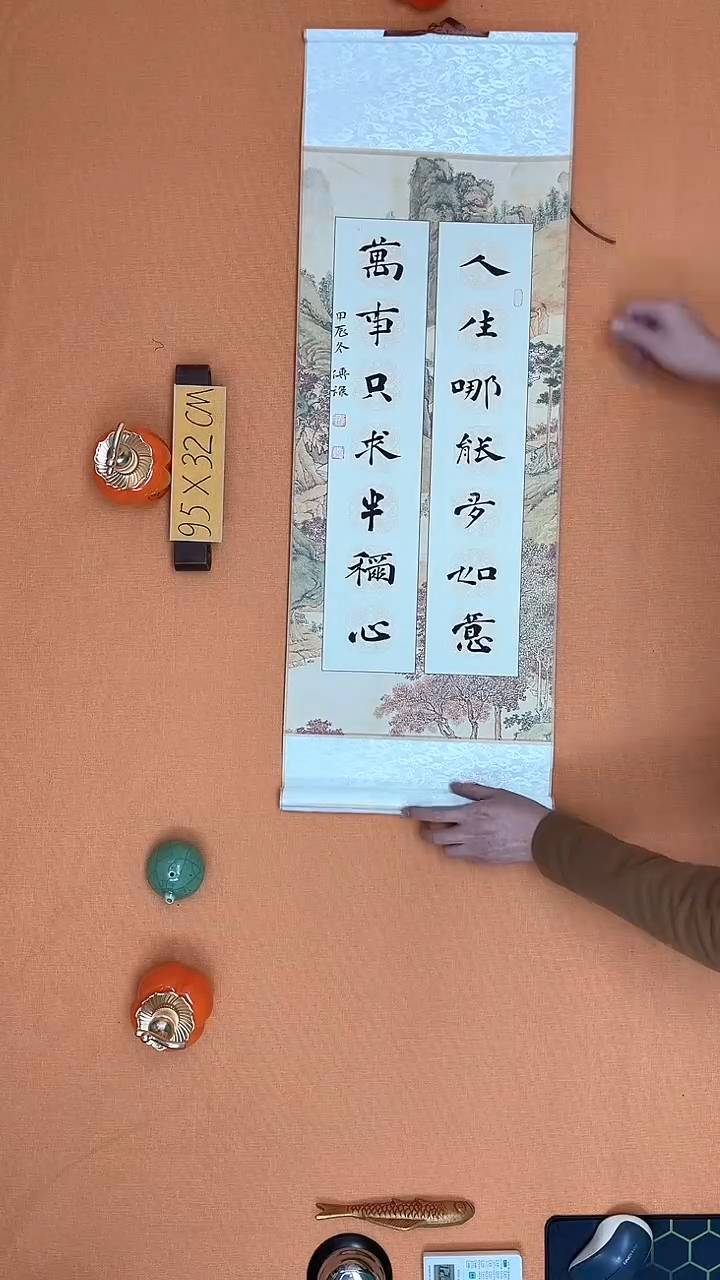 人生哪能多如意
萬事只求半稱心
甲辰冬
95 X 32 CM